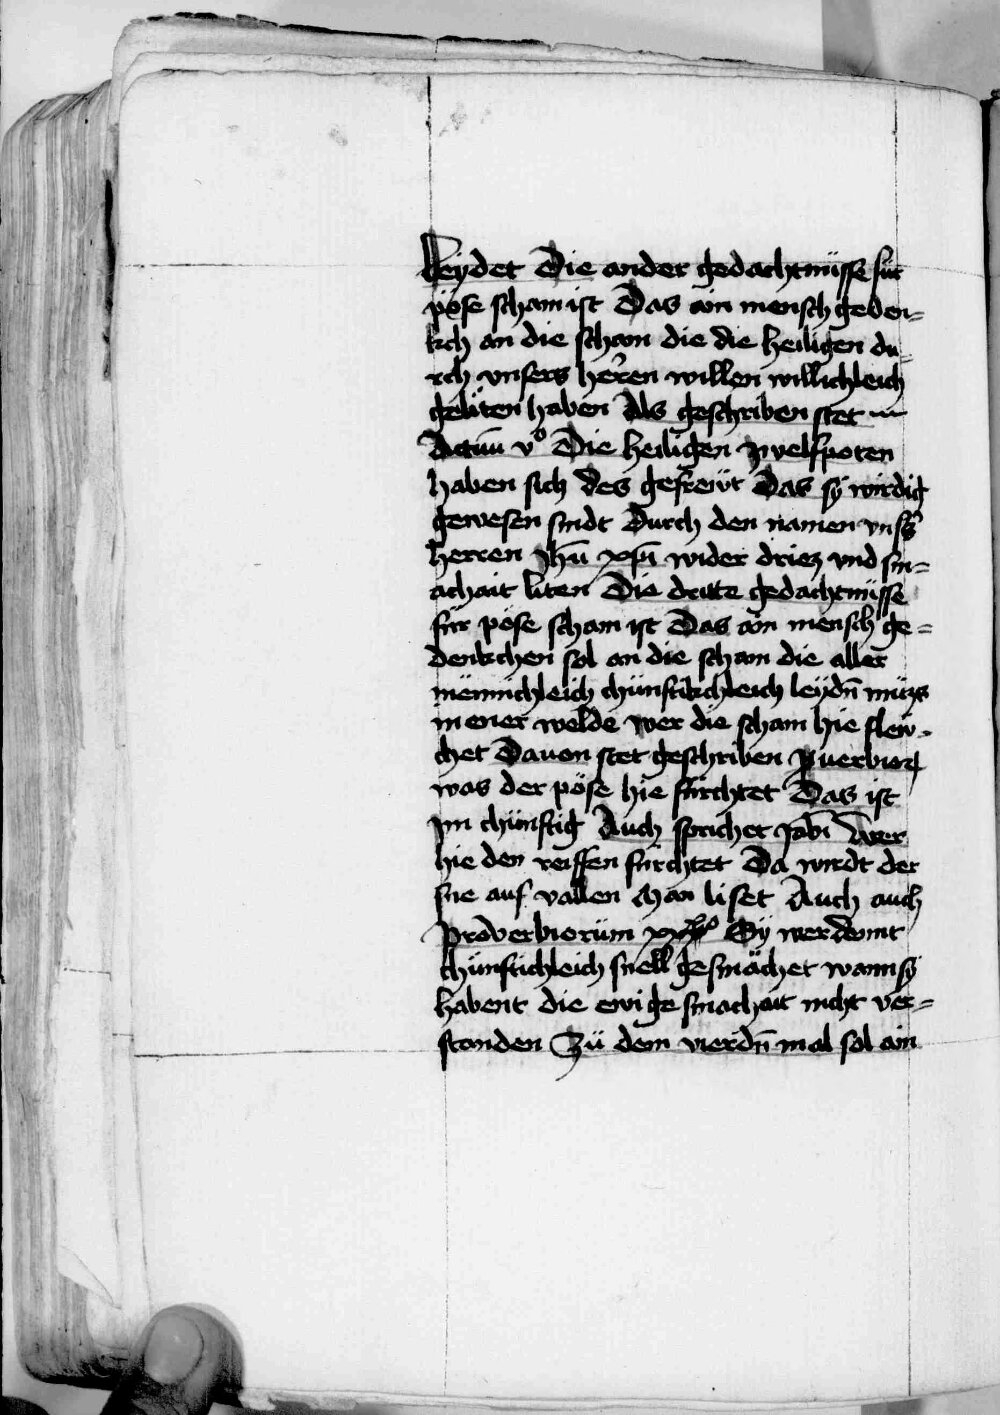 leydet Die ander gedachtnüsse für
pöse scham ist Das ain mensch geden=
kch an die scham die die heiligen du=
rch vnsers herren willen willichleich
geliten haben Als geschriben stet
Actuū vº Die heiligen zwelfpoten
haben sich des gefreẅt Das sy wirdig
gewesen sindt Durch den namen vnsꝰs
herren Jhū xp̄i wider driez vnd sm=
achait liten Die dritte gedachtnüsse
für pöse scham ist Das ain mensch ge=
denkchen sol an die scham die aller
männichleich chünftikchleich leydn̄ müzs
in ener welde wer die scham hie flew=
chet Dauon stet geschriben Puerbiorꝝ
was der pöse hie fürchtet Das ist
im chünftig Auch sprichet Jobī Wer
hie den reiffen fürchtet Da wirdt der
sne auf vallen Man liset Auch auch
Proverbiorum Sy werdennt
chünftichleich snell gesmächet wann sy
habent die ewige smachait nicht ver=
standen Zü dem vierdn̄ mal sol ain